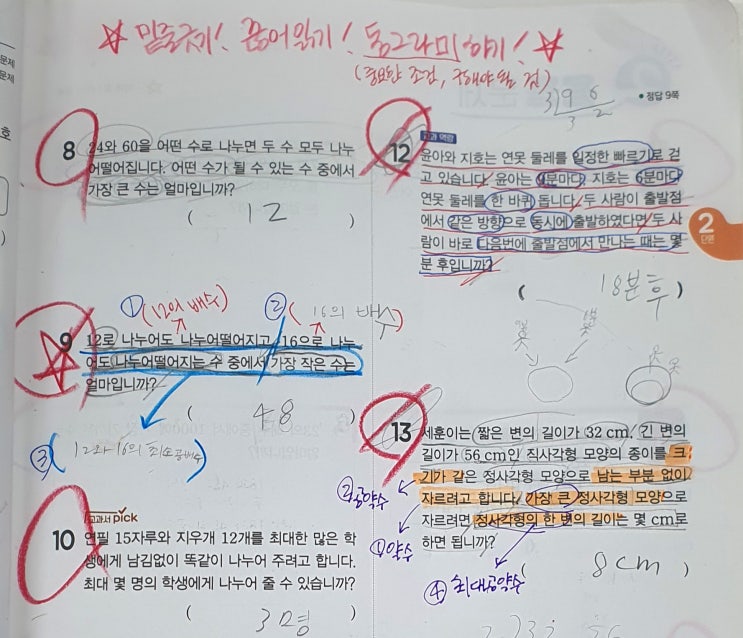 ☆ 밑줄긋기! 끊어읽기! 동그라미하기! ☆
(중요한 조건, 구해야 될 것)
8 24와 60을 어떤 수로 나누면 두 수 모두 나누
어떨어집니다. 어떤 수가 될 수 있는 수 중에서
가장 큰 수는 얼마입니까?
( 12 )
① (12의 배수)
② (16의 배수)
9 12로 나누어도 나누어떨어지고, 16으로 나누
어도 나누어떨어지는 수 중에서 가장 작은 수는
얼마입니까?
( 48 )
③ (12와 16의 최소공배수)
교과서 pick
10 연필 15자루와 지우개 12개를 최대한 많은 학
생에게 남김없이 똑같이 나누어 주려고 합니다.
최대 몇 명의 학생에게 나누어 줄 수 있습니까?
( 3명 )
3)9 6
3 2
• 정답 9쪽
교과 역량
12 윤아와 지호는 연못 둘레를 일정한 빠르기로 걷
고 있습니다. 윤아는 9분마다, 지호는 6분마다
연못 둘레를 한 바퀴 돕니다. 두 사람이 출발점
에서 같은 방향으로 동시에 출발하였다면 두 사
람이 바로 다음번에 출발점에서 만나는 때는 몇
분 후입니까?
( 18분 후 )
2
단원
13 세훈이는 짧은 변의 길이가 32 cm, 긴 변의
길이가 56 cm인 직사각형 모양의 종이를 크
기가 같은 정사각형 모양으로 남는 부분 없이
자르려고 합니다. 가장 큰 정사각형 모양으로
자르려면 정사각형의 한 변의 길이는 몇 cm로
하면 됩니까?
( 8cm )
② 공약수
① 약수
④ 최대공약수
문제
문제
호